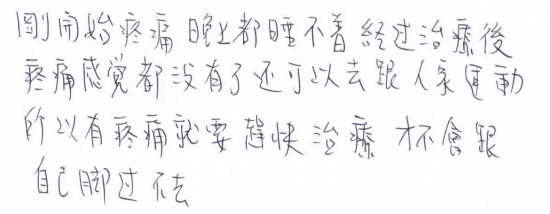 剛開始疼痛晚上都睡不着经过治療後
疼痛感觉都没有了还可以去跟人家運動
所以有疼痛就要趕快治療 才不會跟
自己脚过不去